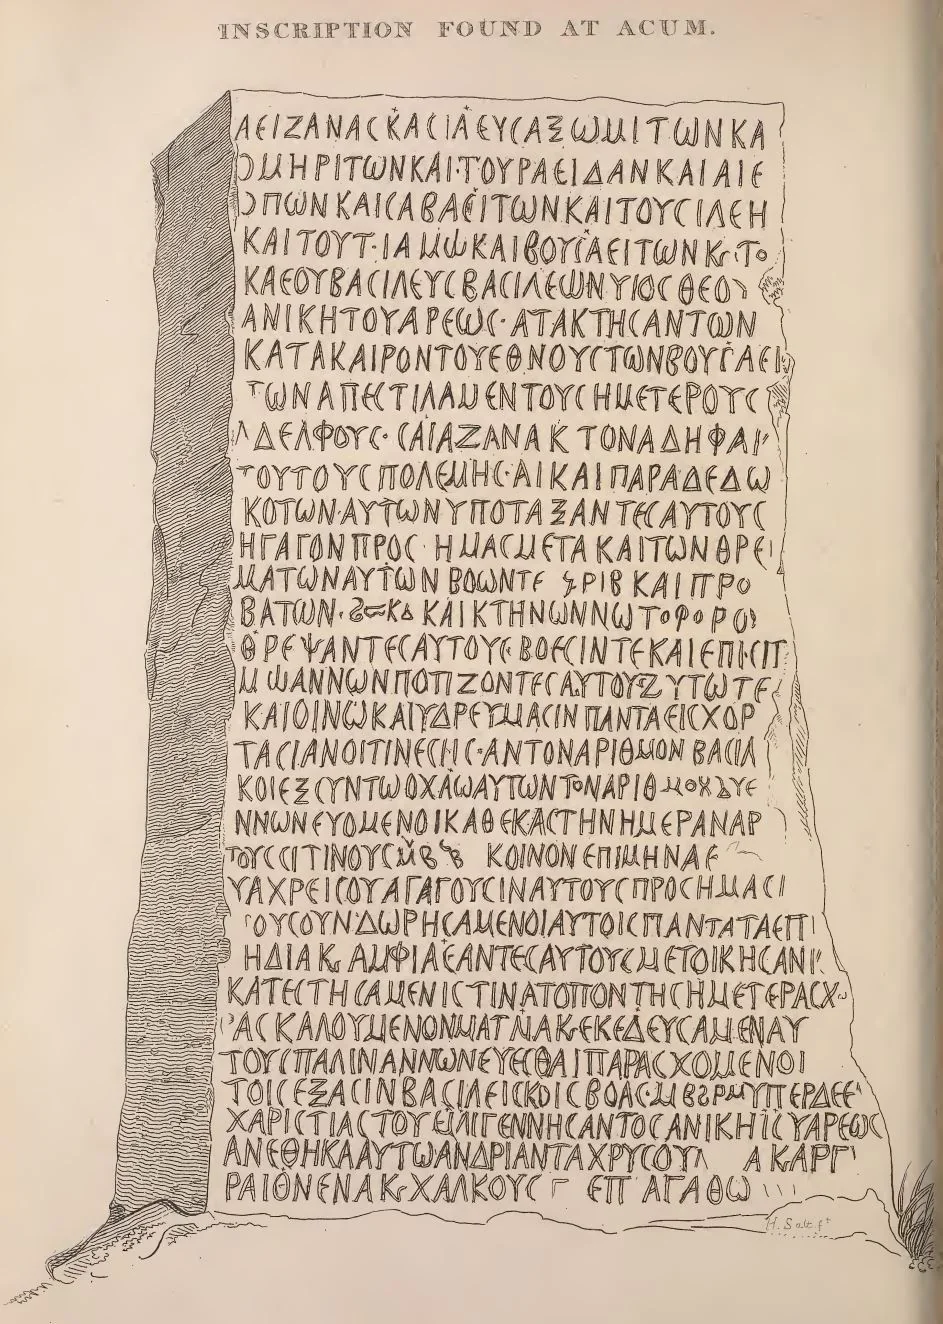 INSCRIPTION FOUND AT ACUM.
ΑΕΙΖΑΝΑϹΚΑϹΙΛΕΥϹΑΞΩΜΙΤΩΝΚΑ
ΟΜΗΡΙΤΩΝΚΑΙ·ΤΟΥΡΑΕΙΔΑΝΚΑΙΑΙΕ
ΟΠΩΝΚΑΙϹΑΒΑΕΙΤΩΝΚΑΙΤΟΥϹΙΛΕΗ
ΚΑΙΤΟΥΤ·ΙΑΜΩΚΑΙΒΟΥΓΑΕΙΤΩΝΚ·ΤΟ
ΚΑΕΟΥΒΑϹΙΛΕΥϹΒΑϹΙΛΕΩΝΥΙΟϹΘΕΟΥ
ΑΝΙΚΗΤΟΥΑΡΕΩϹ·ΑΤΑΚΤΗϹΑΝΤΩΝ
ΚΑΤΑΚΑΙΡΟΝΤΟΥΕΘΝΟΥϹΤΩΝΒΟΥΓΑΕΙ
ΤΩΝΑΠΕϹΤΙΛΑΜΕΝΤΟΥϹΗΜΕΤΕΡΟΥϹ
ΑΔΕΛΦΟΥϹ·ϹΑΙΑΖΑΝΑΚΤΟΝΑΔΗΦΑΝ
ΤΟΥΤΟΥϹΠΟΛΕΜΗϹ·ΑΙΚΑΙΠΑΡΑΔΕΔΩ
ΚΟΤΩΝ·ΑΥΤΩΝΥΠΟΤΑΞΑΝΤΕϹΑΥΤΟΥϹ
ΗΓΑΓΟΝΠΡΟϹ·ΗΜΑϹΜΕΤΑΚΑΙΤΩΝΘΡΕΙ
ΜΑΤΩΝΑΥΤΩΝΒΟΩΝΤΕ ϡΡΙΒΚΑΙΠΡΟ
ΒΑΤΩΝ· ΚΑΙΚΤΗΝΩΝΝΩΤΟΦΟΡΟΥ
ΘΡΕΨΑΝΤΕϹΑΥΤΟΥϹΒΟΕϹΙΝΤΕΚΑΙΕΠΙϹΙΤ
ΜΩΑΝΝΩΝΠΟΤΙΖΟΝΤΕϹΑΥΤΟΥΖΥΤΩΤΕ
ΚΑΙΟΙΝΩΚΑΙΥΔΡΕΥΜΑϹΙΝΠΑΝΤΑΕΙϹΧΟΡ
ΤΑϹΙΑΝΟΙΤΙΝΕϹΗϹ·ΑΝΤΟΝΑΡΙΘΜΟΝΒΑϹΙΛ
ΚΟΙΕΞϹΥΝΤΩΟΧΛΩΑΥΤΩΝΤΟΝΑΡΙΘΜΟΧΔΥΕ
ΝΝΩΝΕΥΟΜΕΝΟΙΚΑΘΕΚΑϹΤΗΝΗΜΕΡΑΝΑΡ
ΤΟΥϹϹΙΤΙΝΟΥϹ ΚΟΙΝΟΝΕΠΙΜΗΝΑΕ
ΥΑΧΡΕΙϹΟΥΑΓΑΓΟΥϹΙΝΑΥΤΟΥϹΠΡΟϹΗΜΑϹΙ
ΤΟΥϹΟΥΝΔΩΡΗϹΑΜΕΝΟΙΑΥΤΟΙϹΠΑΝΤΑΤΑΕΠΙ
ΗΔΙΑΚ·ΑΜΦΙΑΕΑΝΤΕϹΑΥΤΟΥϹΜΕΤΟΙΚΗϹΑΝ
ΚΑΤΕϹΤΗϹΑΜΕΝΙϹΤΙΝΑΤΟΠΟΝΤΗϹΗΜΕΤΕΡΑϹΧΟ
ΡΑϹΚΑΛΟΥΜΕΝΟΝΜΑΤΛΙΑΚ·ΕΚΕΔΕΥϹΑΜΕΝΑΥ
ΤΟΥϹΠΑΛΙΝΑΝΝΩΝΕΥΕϹΘΑΙΠΑΡΑϹΧΟΜΕΝΟΙ
ΤΟΙϹΕΞΑϹΙΝΒΑϹΙΛΕΙϹΚΟΙϹΒΟΑϹ ΥΠΕΡΔΕΕ
ΧΑΡΙϹΤΙΑϹΤΟΥΕΜΕΓΕΝΝΗϹΑΝΤΟϹΑΝΙΚΗΤΟΥΑΡΕΩϹ
ΑΝΕΘΗΚΑΑΥΤΩΑΝΔΡΙΑΝΤΑΧΡΥϹΟΥΝ ΑΚΑΡΓ
ΡΑΙΟΝΕΝΑΚ·ΧΑΛΚΟΥϹ Γ ΕΠ ΑΓΑΘΩ
H. Salt ft